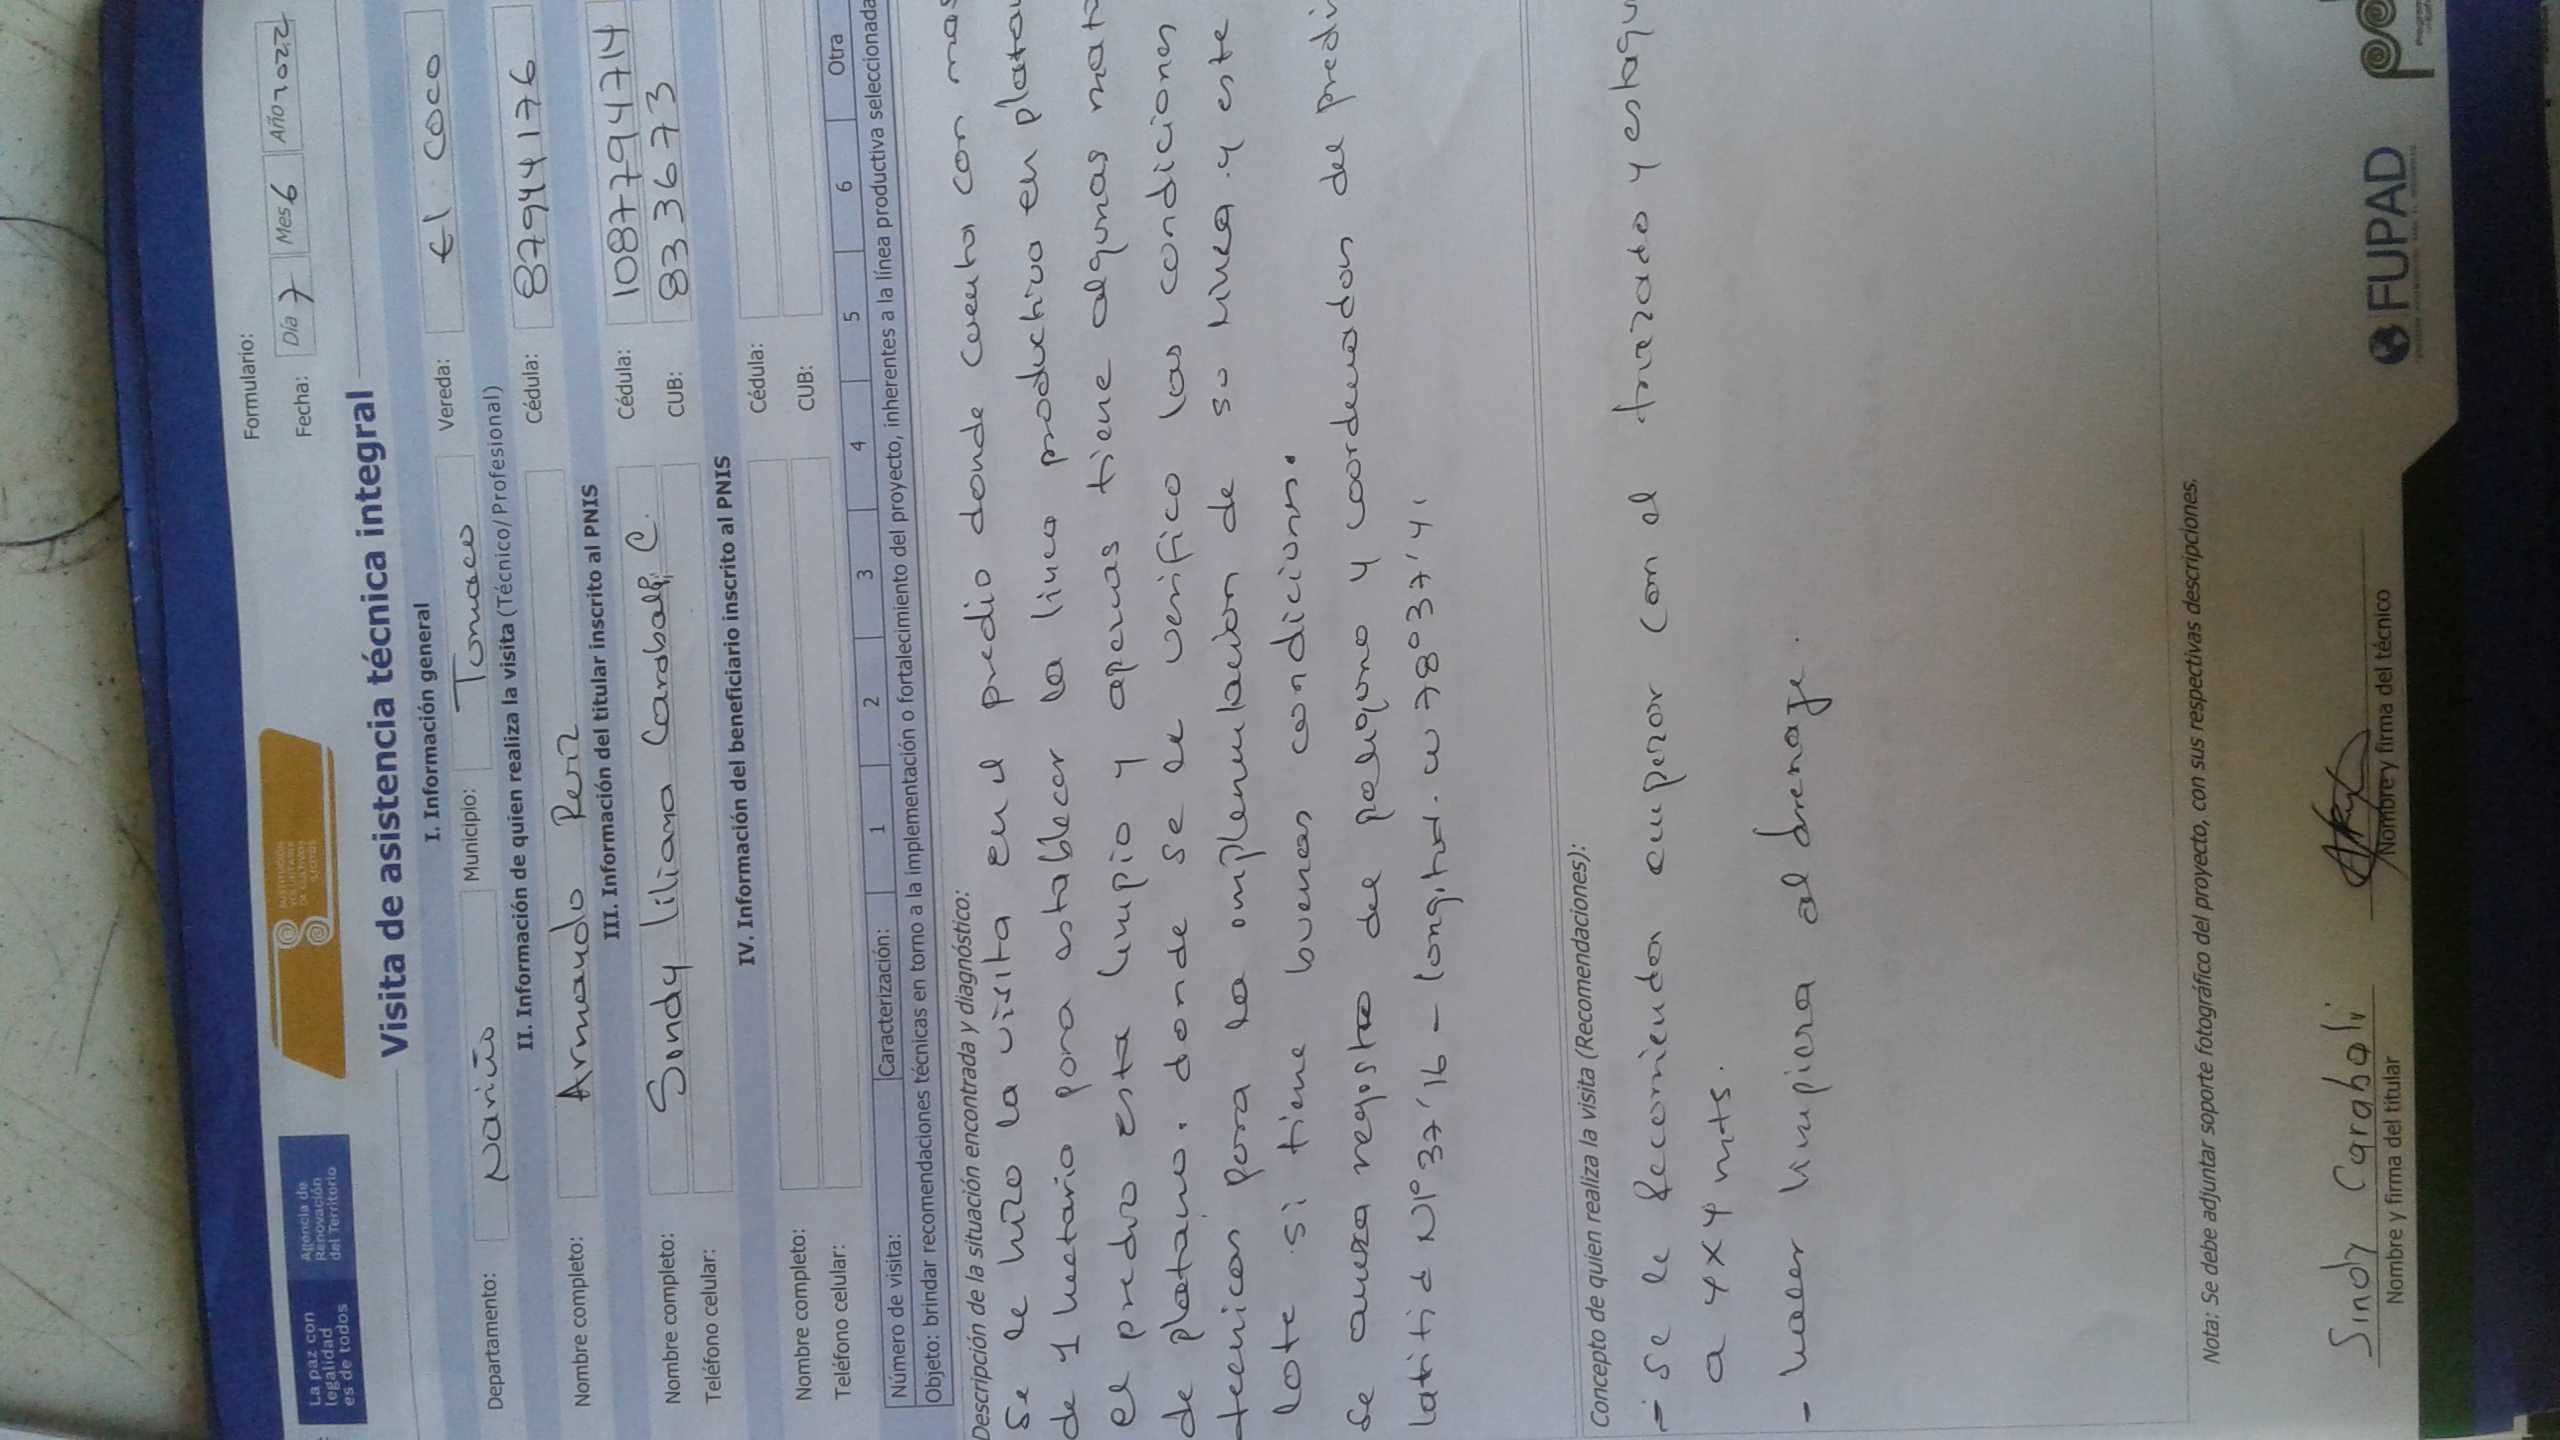 La paz con
legalidad
es de todos
Agencia de
Renovación
del Territorio
SUSTITUCIÓN
VOLUNTARIA
DE CULTIVOS
ILÍCITOS
Formulario:
Fecha: Día 7 Mes 6 Año 2022
Visita de asistencia técnica integral
I. Información general
Departamento: Nariño Municipio: Tumaco Vereda: El Coco
II. Información de quien realiza la visita (Técnico/Profesional)
Nombre completo: Armando Cédula: 87944176
III. Información del titular inscrito al PNIS
Nombre completo: Sindy Liliana Carabali C. Cédula: 1087794714
Teléfono celular: CUB: 8336673
IV. Información del beneficiario inscrito al PNIS
Nombre completo: Cédula:
Teléfono celular: CUB:
Número de visita: Caracterización: 1 2 3 4 5 6 Otra
Objeto: brindar recomendaciones técnicas en torno a la implementación o fortalecimiento del proyecto, inherentes a la línea productiva seleccionada
Descripción de la situación encontrada y diagnóstico:
Se le hizo la visita en el predio donde cuenta con mas
de 1 hectaria para establecer la linea productiva en
el predio esta limpio y apenas tiene algunas
de platano. donde se le verifico las condiciones
tecnicas para la implementacion de su linea y este
lote si tiene buenas condiciones.
Se registro del poligono y coordenadas del
latitid N1° 37'16 - longitud. w 78°03 7'41
Concepto de quien realiza la visita (Recomendaciones):
- Se le Recomienda empezar con el trazado y
a 4x4 mts.
- hacer limpieza al drenage.
Nota: Se debe adjuntar soporte fotográfico del proyecto, con sus respectivas descripciones.
Sindy Carabali
Nombre y firma del titular Nombre y firma del técnico
FUPAD